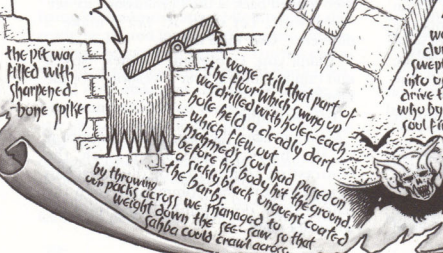 the pit was
filled with
sharpened-
-bone spikes
worse still that part of
the floor which swung up
was drilled with holes-each
hole held a deadly dart
which flew out.
mohmeds soul had passed on
before his body hit the ground.
a sickly black unguent coated
the barbs
by throwing
our packs across we managed to
weight down the see-saw so that
sahba could crawl across
swept
into o
drive t
who by
soul fi